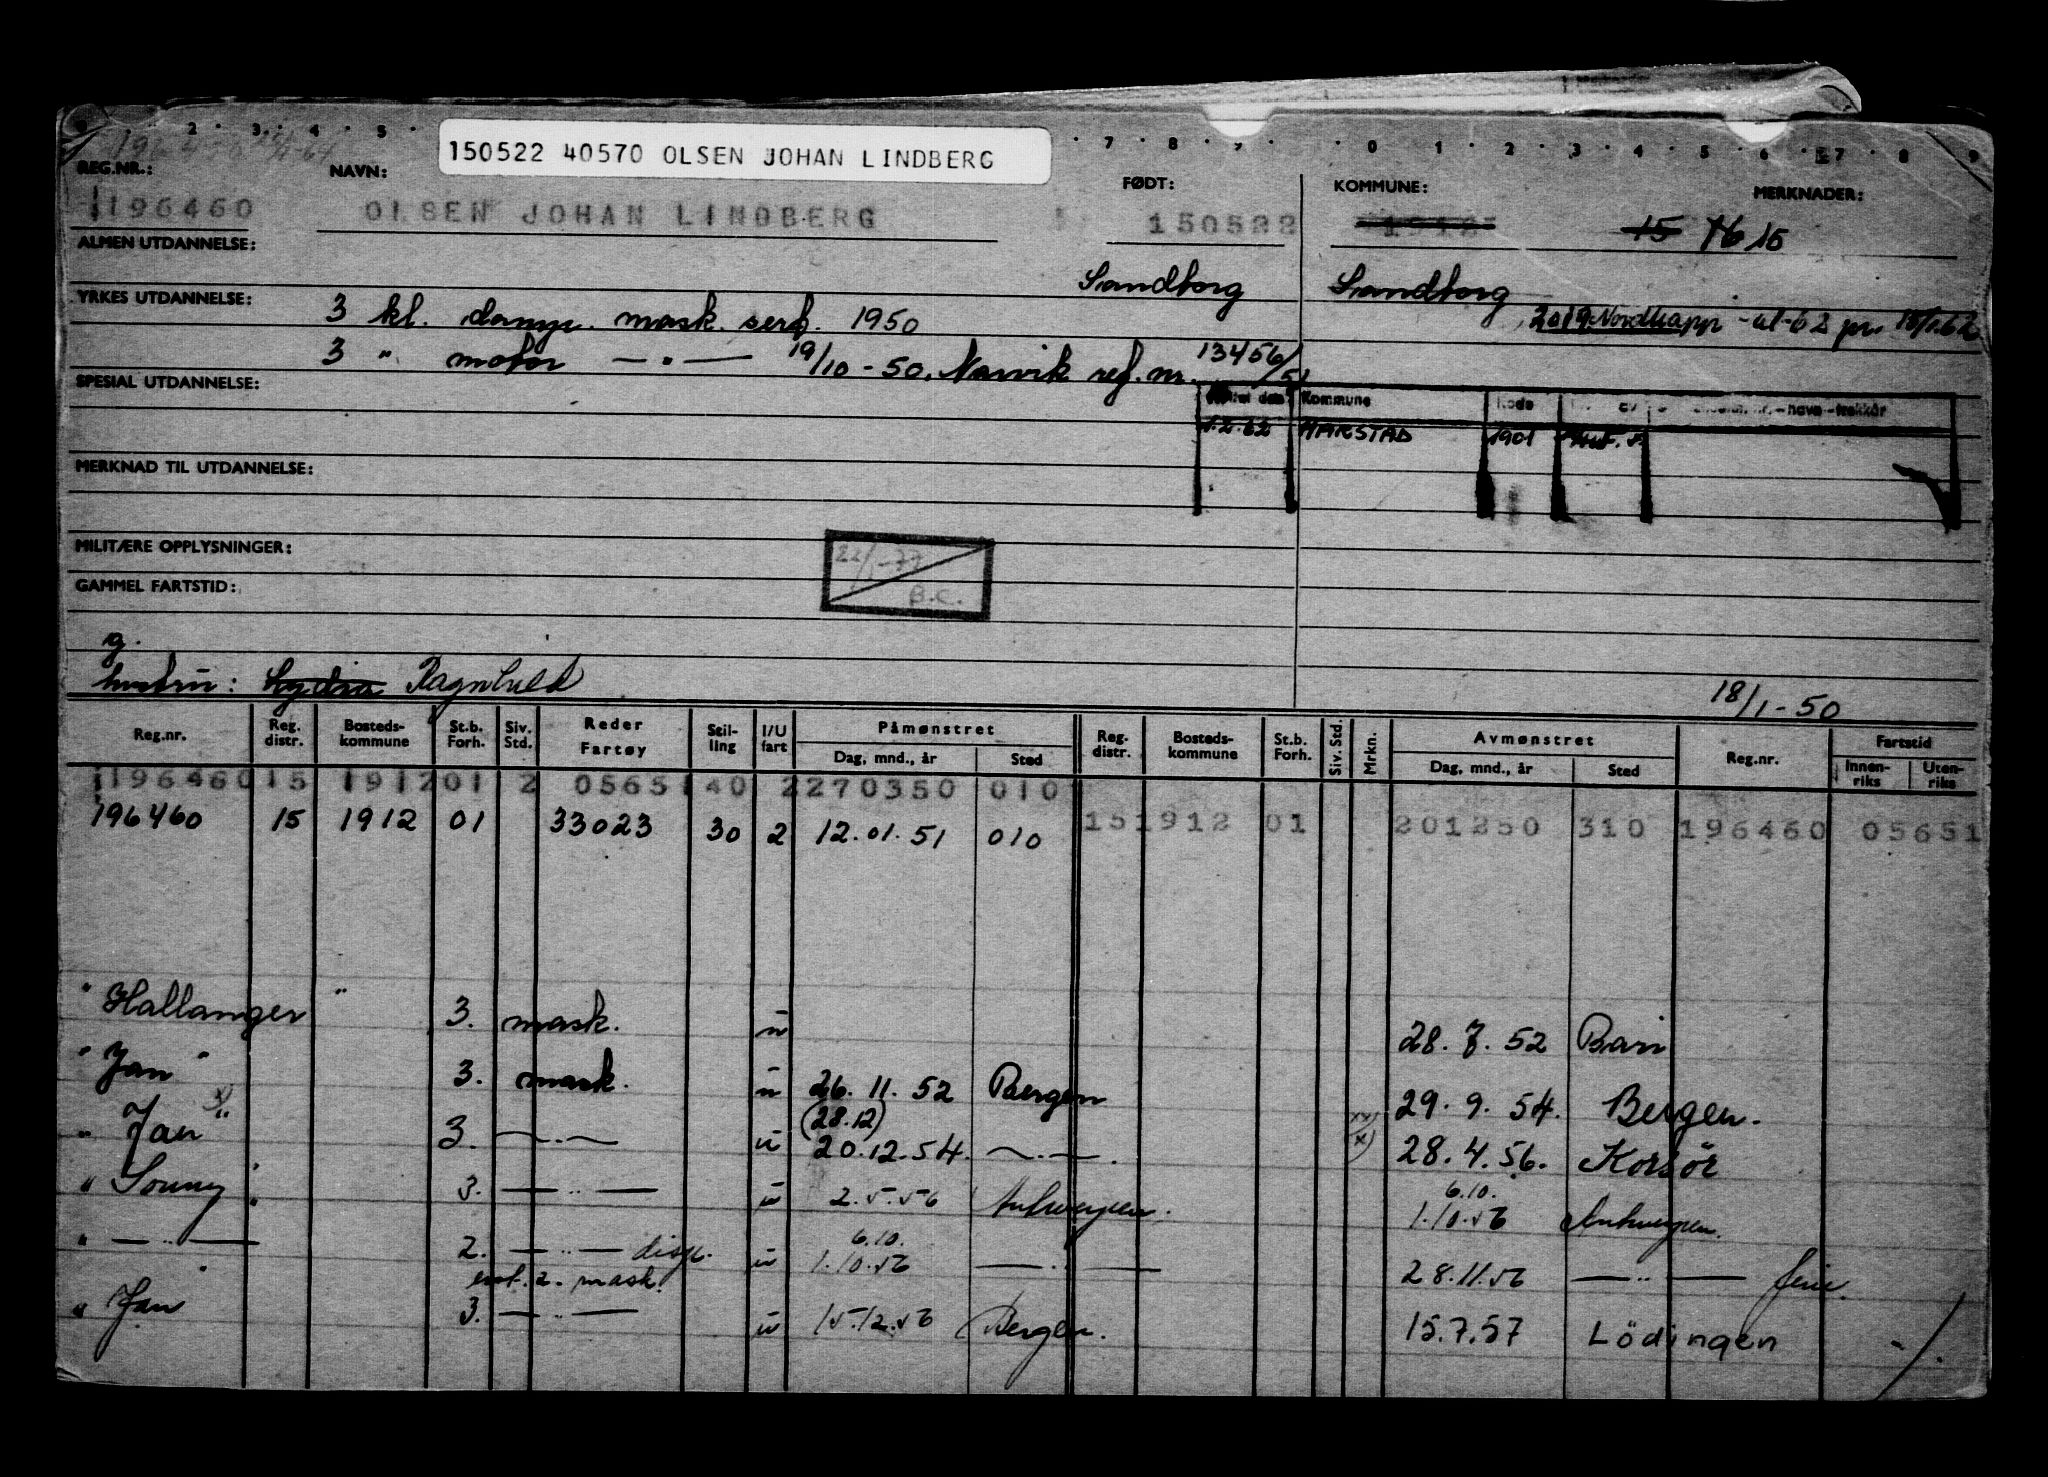 2 · 3 · 4 · 5 · 7 · 8 · 9 · 0 · 1 · 2 · 3 · 4 · 5 · 6 · 7 · 8 · 9
150522 40570 OLSEN JOHAN LINDBERG
REG.NR.: NAVN: FØDT: KOMMUNE: MERKNADER:
196460 OLSEN JOHAN LINDBERG 150522 1912 15 76 15
ALMEN UTDANNELSE:
Sandtorg Sandtorg
YRKES UTDANNELSE: 3 kl. damp. mask. serf. 1950 2019 Nordkapp -ul-62 pr. 15/1.62
3 " motor — " — 19/10 - 50. Narvik ref. nr. 13456/51
SPESIAL UTDANNELSE:
Kommune Kode
1.2.62 HARSTAD 1901
MERKNAD TIL UTDANNELSE:
MILITÆRE OPPLYSNINGER:
22/1-77
B.C.
GAMMEL FARTSTID:
g.
hustru: Lydia Ragnhild
18/1-50
Reg.nr. Reg. distr. Bosteds-kommune St.b. Forh. Siv. Std. Reder Fartøy Stil-ling I/U fart Påmønstret Dag, mnd., år Sted Reg. distr. Bosteds-kommune St.b. Forh. Siv. Std. Mrkn. Avmønstret Dag, mnd., år Sted Reg.nr. Fartstid Innen-riks Uten-riks
196460 15 1912 01 2 05651 40 2 270350 010
196460 15 1912 01 33023 30 2 12.01.51 010 15 1912 01 201250 310 196460 05651
" Hallanger " 3. mask. u 28.7.52 Bari
" Jan " 3. mask. u 26.11.52 Bergen 29.9.54. Bergen.
(28.12)
" Jan x) " 3. — . — u 20.12.54. — . — . xx) (x) 28.4.56. Korsör
6.10.
" Sonny " 3. — " — u 2.5.56 Antwerpen. 1.10.56 Antwerpen.
6.10.
" — " — 2. — " — disp. u 1.10.56 — " — 28.11.56 — " — ferie.
2. mask.
" Jan " 3. — " — u 15.12.56 Bergen. 15.7.57 Lödingen -/.